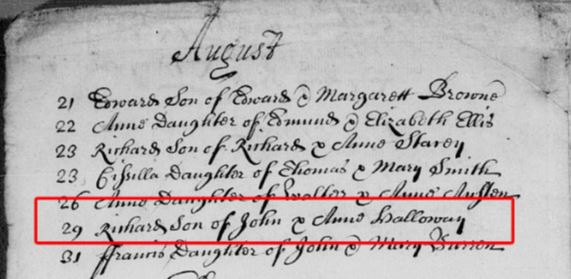 August
21 Edward Son of Edward & Margarett Browne
22 Anne Daughter of Edmund & Elizabeth Ellis
23 Richard Son of Richard & Anne Starey
23 Cissilla Daughter of Thomas & Mary Smith
26 Anne Daughter of Walter & Anne Austen
29 Richard Son of John & Anne Halloway
31 ffrancis Daughter of John & Mary